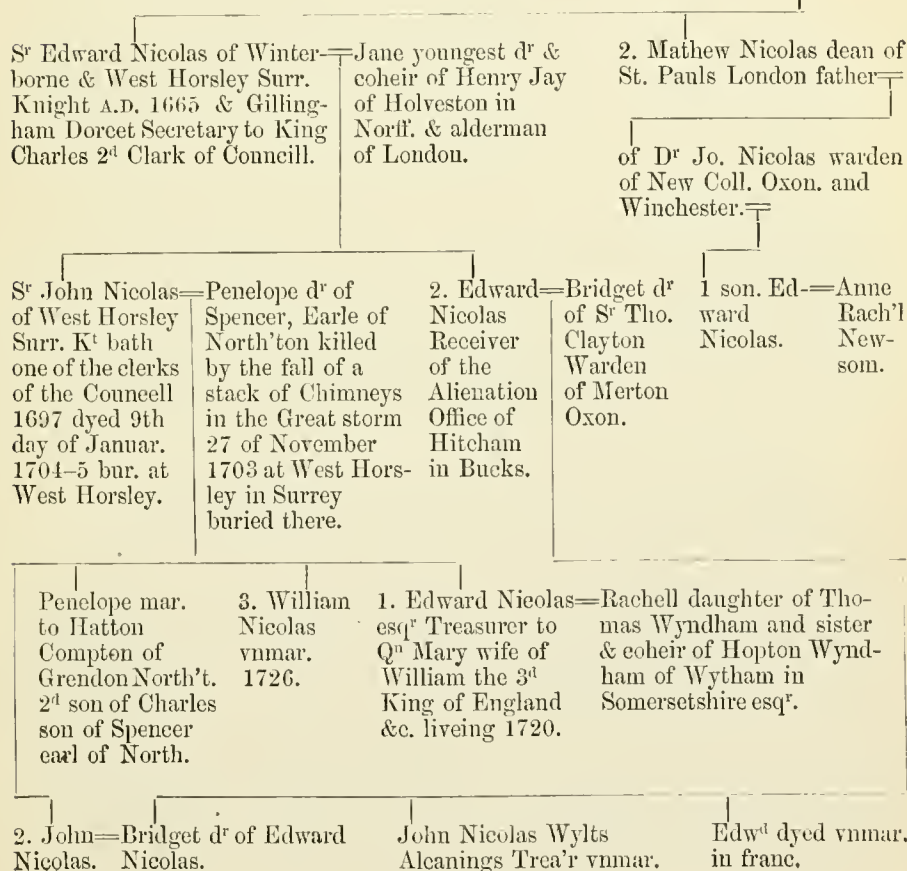 Sʳ Edward Nicolas of Winter-
borne & West Horsley Surr.
Knight A.D. 1665 & Gilling-
ham Dorcet Secretary to King
Charles 2ᵈ Clark of Councill.
Jane youngest dʳ &
coheir of Henry Jay
of Holveston in
Norff. & alderman
of London.
2. Mathew Nicolas dean of
St. Pauls London father
of Dʳ Jo. Nicolas warden
of New Coll. Oxon. and
Winchester.
Sʳ John Nicolas
of West Horsley
Surr. Kᵗ bath
one of the clerks
of the Councell
1697 dyed 9th
day of Januar.
1704–5 bur. at
West Horsley.
Penelope dʳ of
Spencer, Earle of
North'ton killed
by the fall of a
stack of Chimneys
in the Great storm
27 of November
1703 at West Hors-
ley in Surrey
buried there.
2. Edward
Nicolas
Receiver
of the
Alienation
Office of
Hitcham
in Bucks.
Bridget dʳ
of Sʳ Tho.
Clayton
Warden
of Merton
Oxon.
1 son. Ed-
ward
Nicolas.
Anne
Rach'l
New-
som.
Penelope mar.
to Hatton
Compton of
Grendon North't.
2ᵈ son of Charles
son of Spencer
earl of North.
3. William
Nicolas
vnmar.
1726.
1. Edward Nicolas
esqʳ Treasurer to
Qⁿ Mary wife of
William the 3ᵈ
King of England
&c. liveing 1720.
Rachell daughter of Tho-
mas Wyndham and sister
& coheir of Hopton Wynd-
ham of Wytham in
Somersetshire esqʳ.
2. John
Nicolas.
Bridget dʳ of Edward
Nicolas.
John Nicolas Wylts
Alcanings Trea'r vnmar.
Edwᵈ dyed vnmar.
in franc.